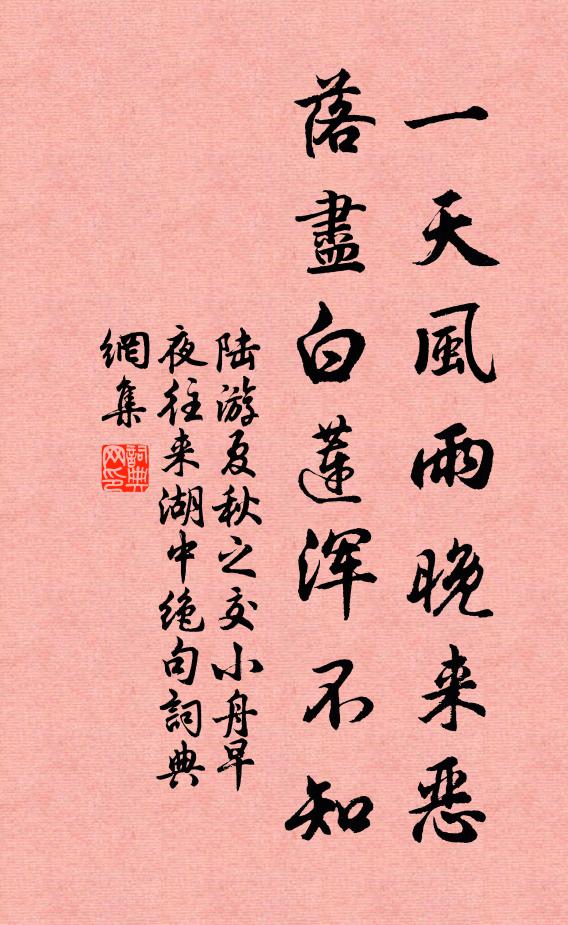 一天風雨晚来惡
落盡白蓮浑不知
陆游夏秋之交小舟早
夜往来湖中绝句詞典
網集
詞典
网印